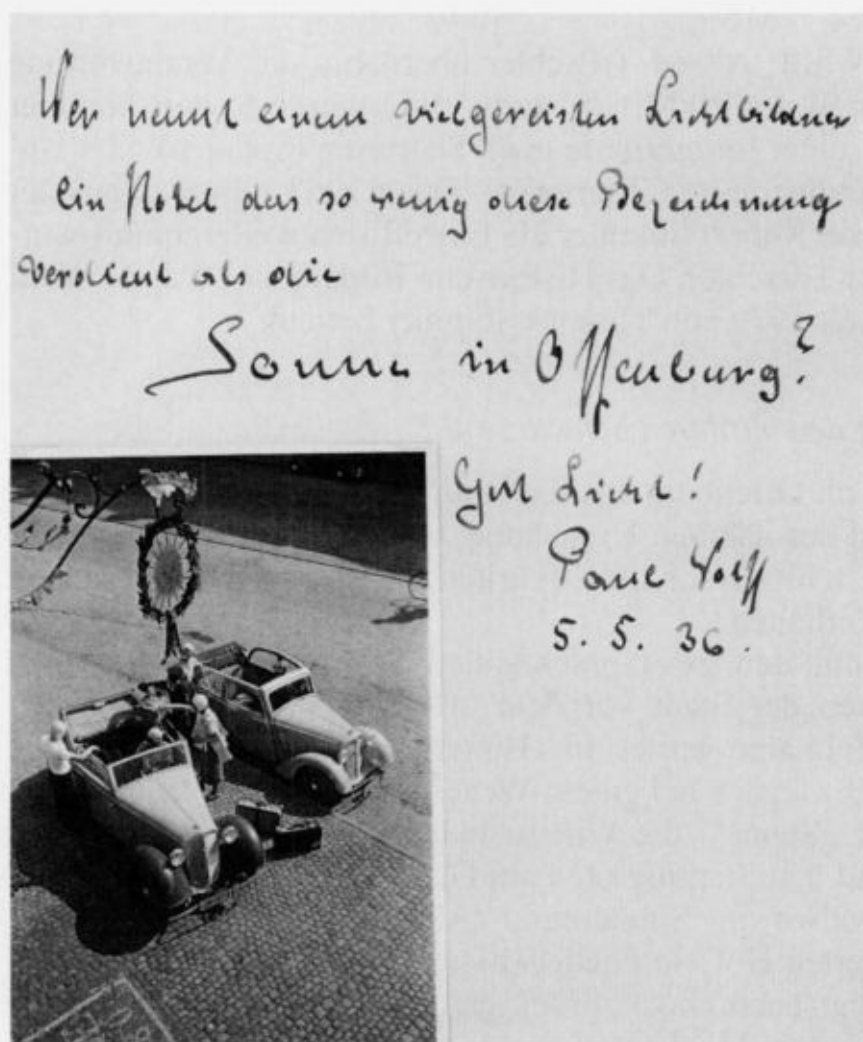 Wer nennt einem vielgereisten Lichtbildner
ein Hotel das so wenig diese Bezeichnung
verdient als die
Sonne in Offenburg?
Gut Licht!
Paul Wolff
5. 5. 36.